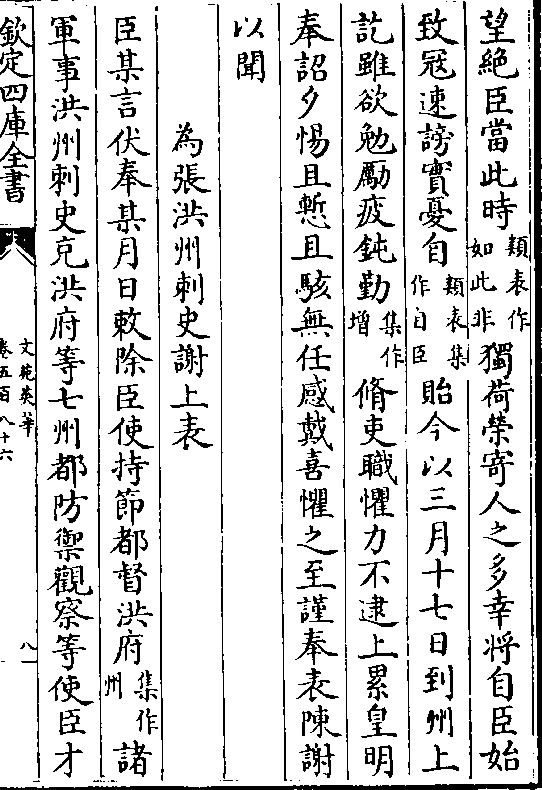 望絶臣當此時類表作如此非獨荷榮寄人之多幸將自臣始
致冦速謗實憂自類表集作自臣貽今以三月十七日到州上
訖雖欲勉勵疲鈍勤集作增脩吏職懼力不逮上累皇明
奉詔夕惕且慙且駭無任感戴喜懼之至謹奉表陳謝
以聞
為張洪州刺史謝上表
臣某言伏奉某月日敕除臣使持節都督洪府集作州諸
軍事洪州刺史充洪府等七州都防禦觀察等使臣才
欽定四庫全書
文苑英華
卷五百八十六
八